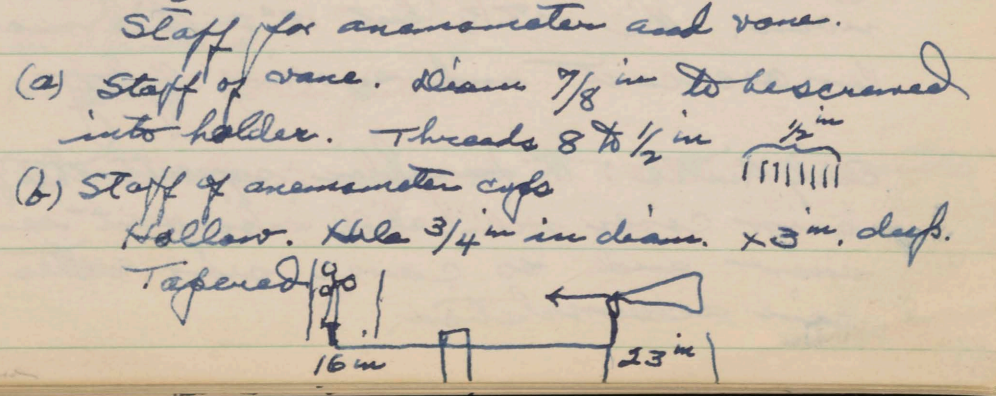 Staff for anemometer and vane.
(a) Staff of vane. Diam 7/8 in to be screwed
into holder. Threads 8 to 1/2 in 1/2 in
(b) Staff of anemometer cups
Hollow. Hole 3/4 in in diam. x 3 in. deep.
Tapered
16 in 23 in